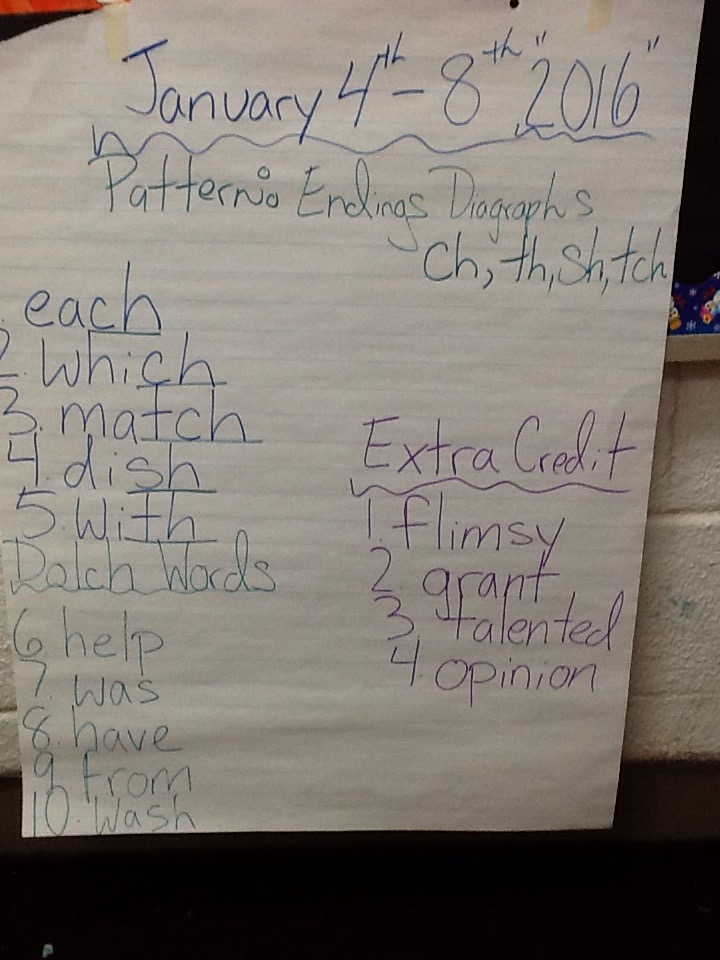 January 4th - 8th "2016"
Pattern: Endings Diagraphs
Ch, th, Sh, tch
. each
2. which
3. match
4. dish
5. with
Dolch Words
6 help
7. was
8. have
9 from
10. wash
Extra Credit
1. flimsy
2. grant
3. talented
4. opinion